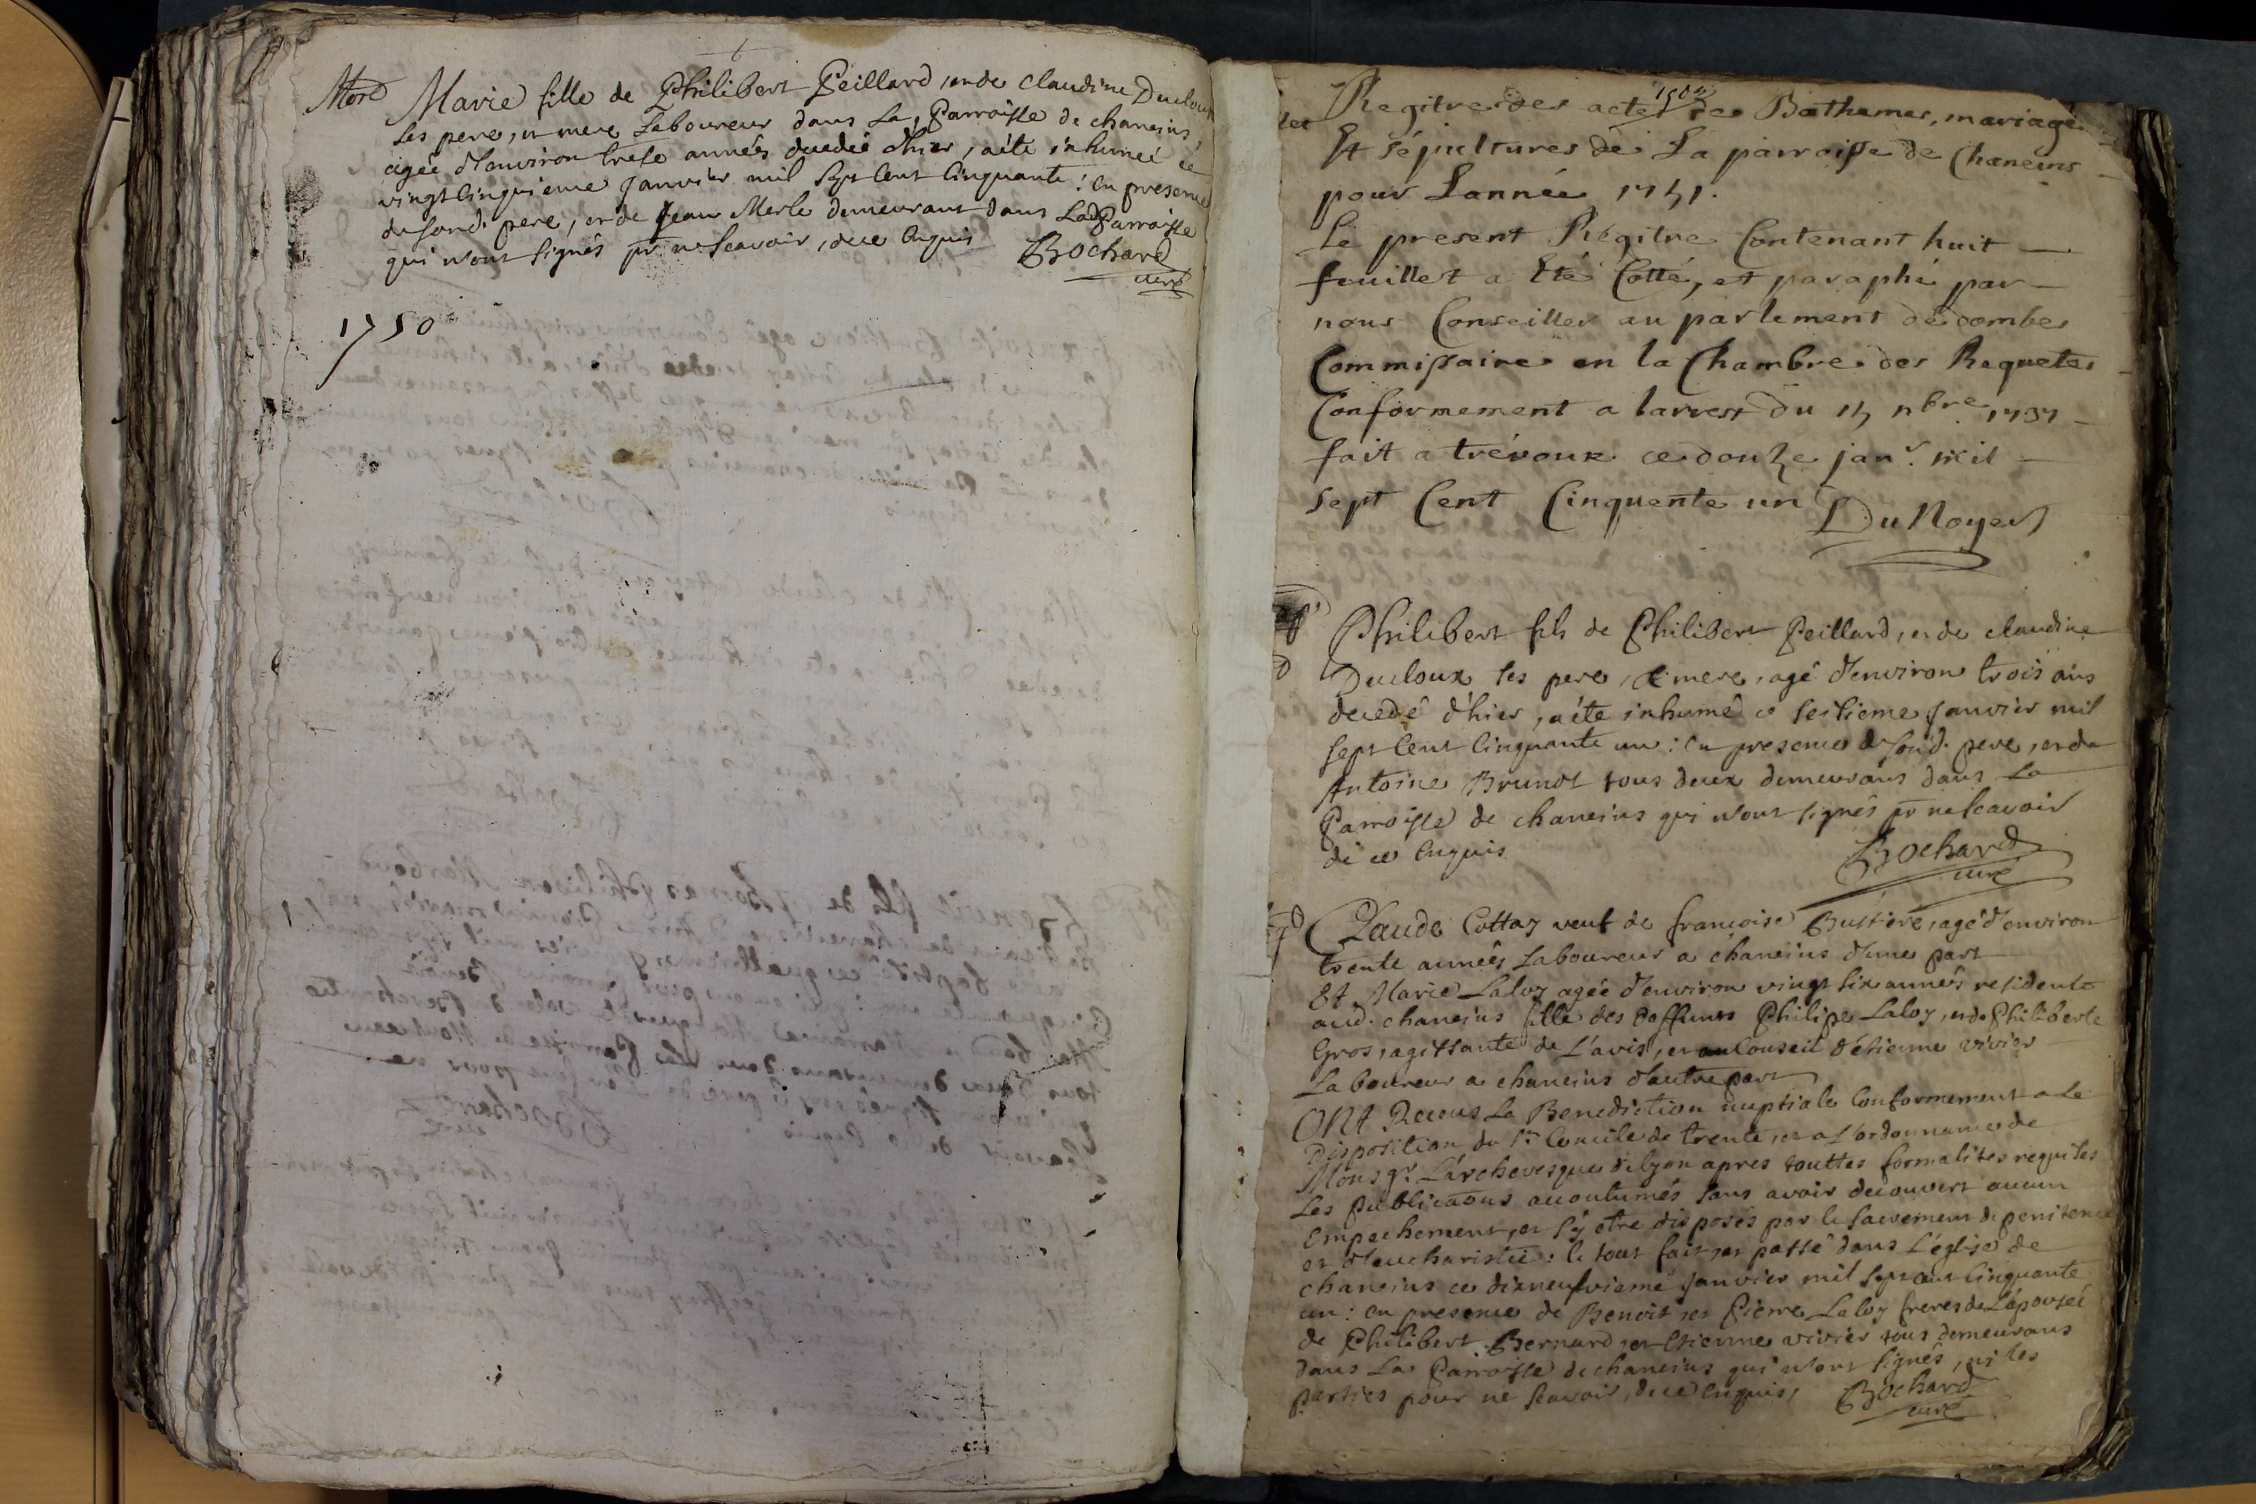 Mort Marie fille de Philibert Peillard, et de claudine Ducloux
ses pere, et mere Laboureur dans La, Parroisse de chaneins
agée d'environ trese années decedée d'hier, aété inhumeé ce
vingt cinquieme Janvier mil sept cent Cinquante : En presence
de sond. pere, et de Jean Merle demeurant dans Lad Parroisse
qui n'ont signés pr ne scavoir, de ce Enquis
Bochard
curé
1750
Regitre des actes des Bathemes, mariage
Et sépultures de La parroisse de Chaneins
pour Lannée 1751.
Le present Régitre Contenant huit
feuillet a Eté Cotté, et paraphé par
nous Conseiller au parlement de dombes
Commissaire en la Chambre des Requetes
Conformement a larrest du 15 nbre 1737
fait a trévoux ce douze janr. mil
sept Cent Cinquente un
DuNoyer
Philibert fils de Philibert Peillard, et de claudine
Ducloux ses pere, & mere, agé d'environ trois ans
decedé d'hier, aété inhumé ce seisieme Janvier mil
sept Cent Cinquante un : En presence de sond. pere, et de
Antoine Brunot tous deux demeurans dans La
Parroisse de chaneins qui n'ont signés pr ne scavoir
de ce Enquis
Bochard
curé
Claude Cottaz veuf de francoise Bussiere, agé d'environ
trente années Laboureur a chaneins d'une part
Et Marie Laloy agée d'environ vingt six années residente
aud. chaneins fille des deffunts Philipe Laloy, et de Philiberte
Gros, agissante de L'avis, et au Conseil d'étienne vivier
Laboureur a chaneins d'autre part
ONt Receus La Benediction nuptiale Conformement a La
Disposition du St Concile de trente, et a L'ordonnance de
Monsgr. L'archevesque de lyon apres touttes formalités requises
Les publicaons acoutumés sans avoir decouvert aucun
Empechement, et s'y etre disposés par le sacrement de penitence
et d'eucharistie : le tout fait, et passé dans L'église de
chaneins ce dixneufvieme Janvier mil sept cent Cinquante
un : en presence de Benoit, et Pierre Laloy freres de L'épousée
de Philibert Bernard, et Etienne vivier tous demeurans
dans La Parroisse de chaneins qui n'ont signés, ni les
parties pour ne scavoir, de ce Enquis,
Bochard
curé